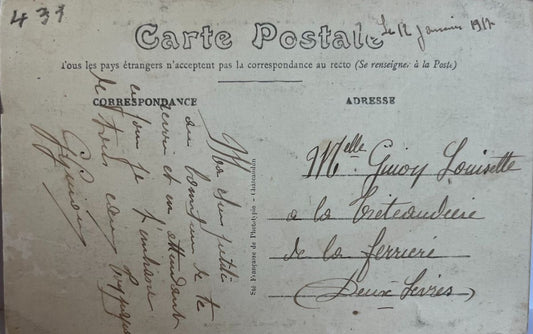 437
Carte Postale
Le 12 Janvier 1917
Tous les pays étrangers n'acceptent pas la correspondance au recto (Se renseigner à la Poste)
CORRESPONDANCE
ADRESSE
Ma chère petite
au bonheur de te
et en attendant
ce jour je t'embrasse
de tout cœur
Sté Française de Phototypie - Châteaudun
Melle Guion Louisette
a la
de la ferriere
(Deux Sevres)